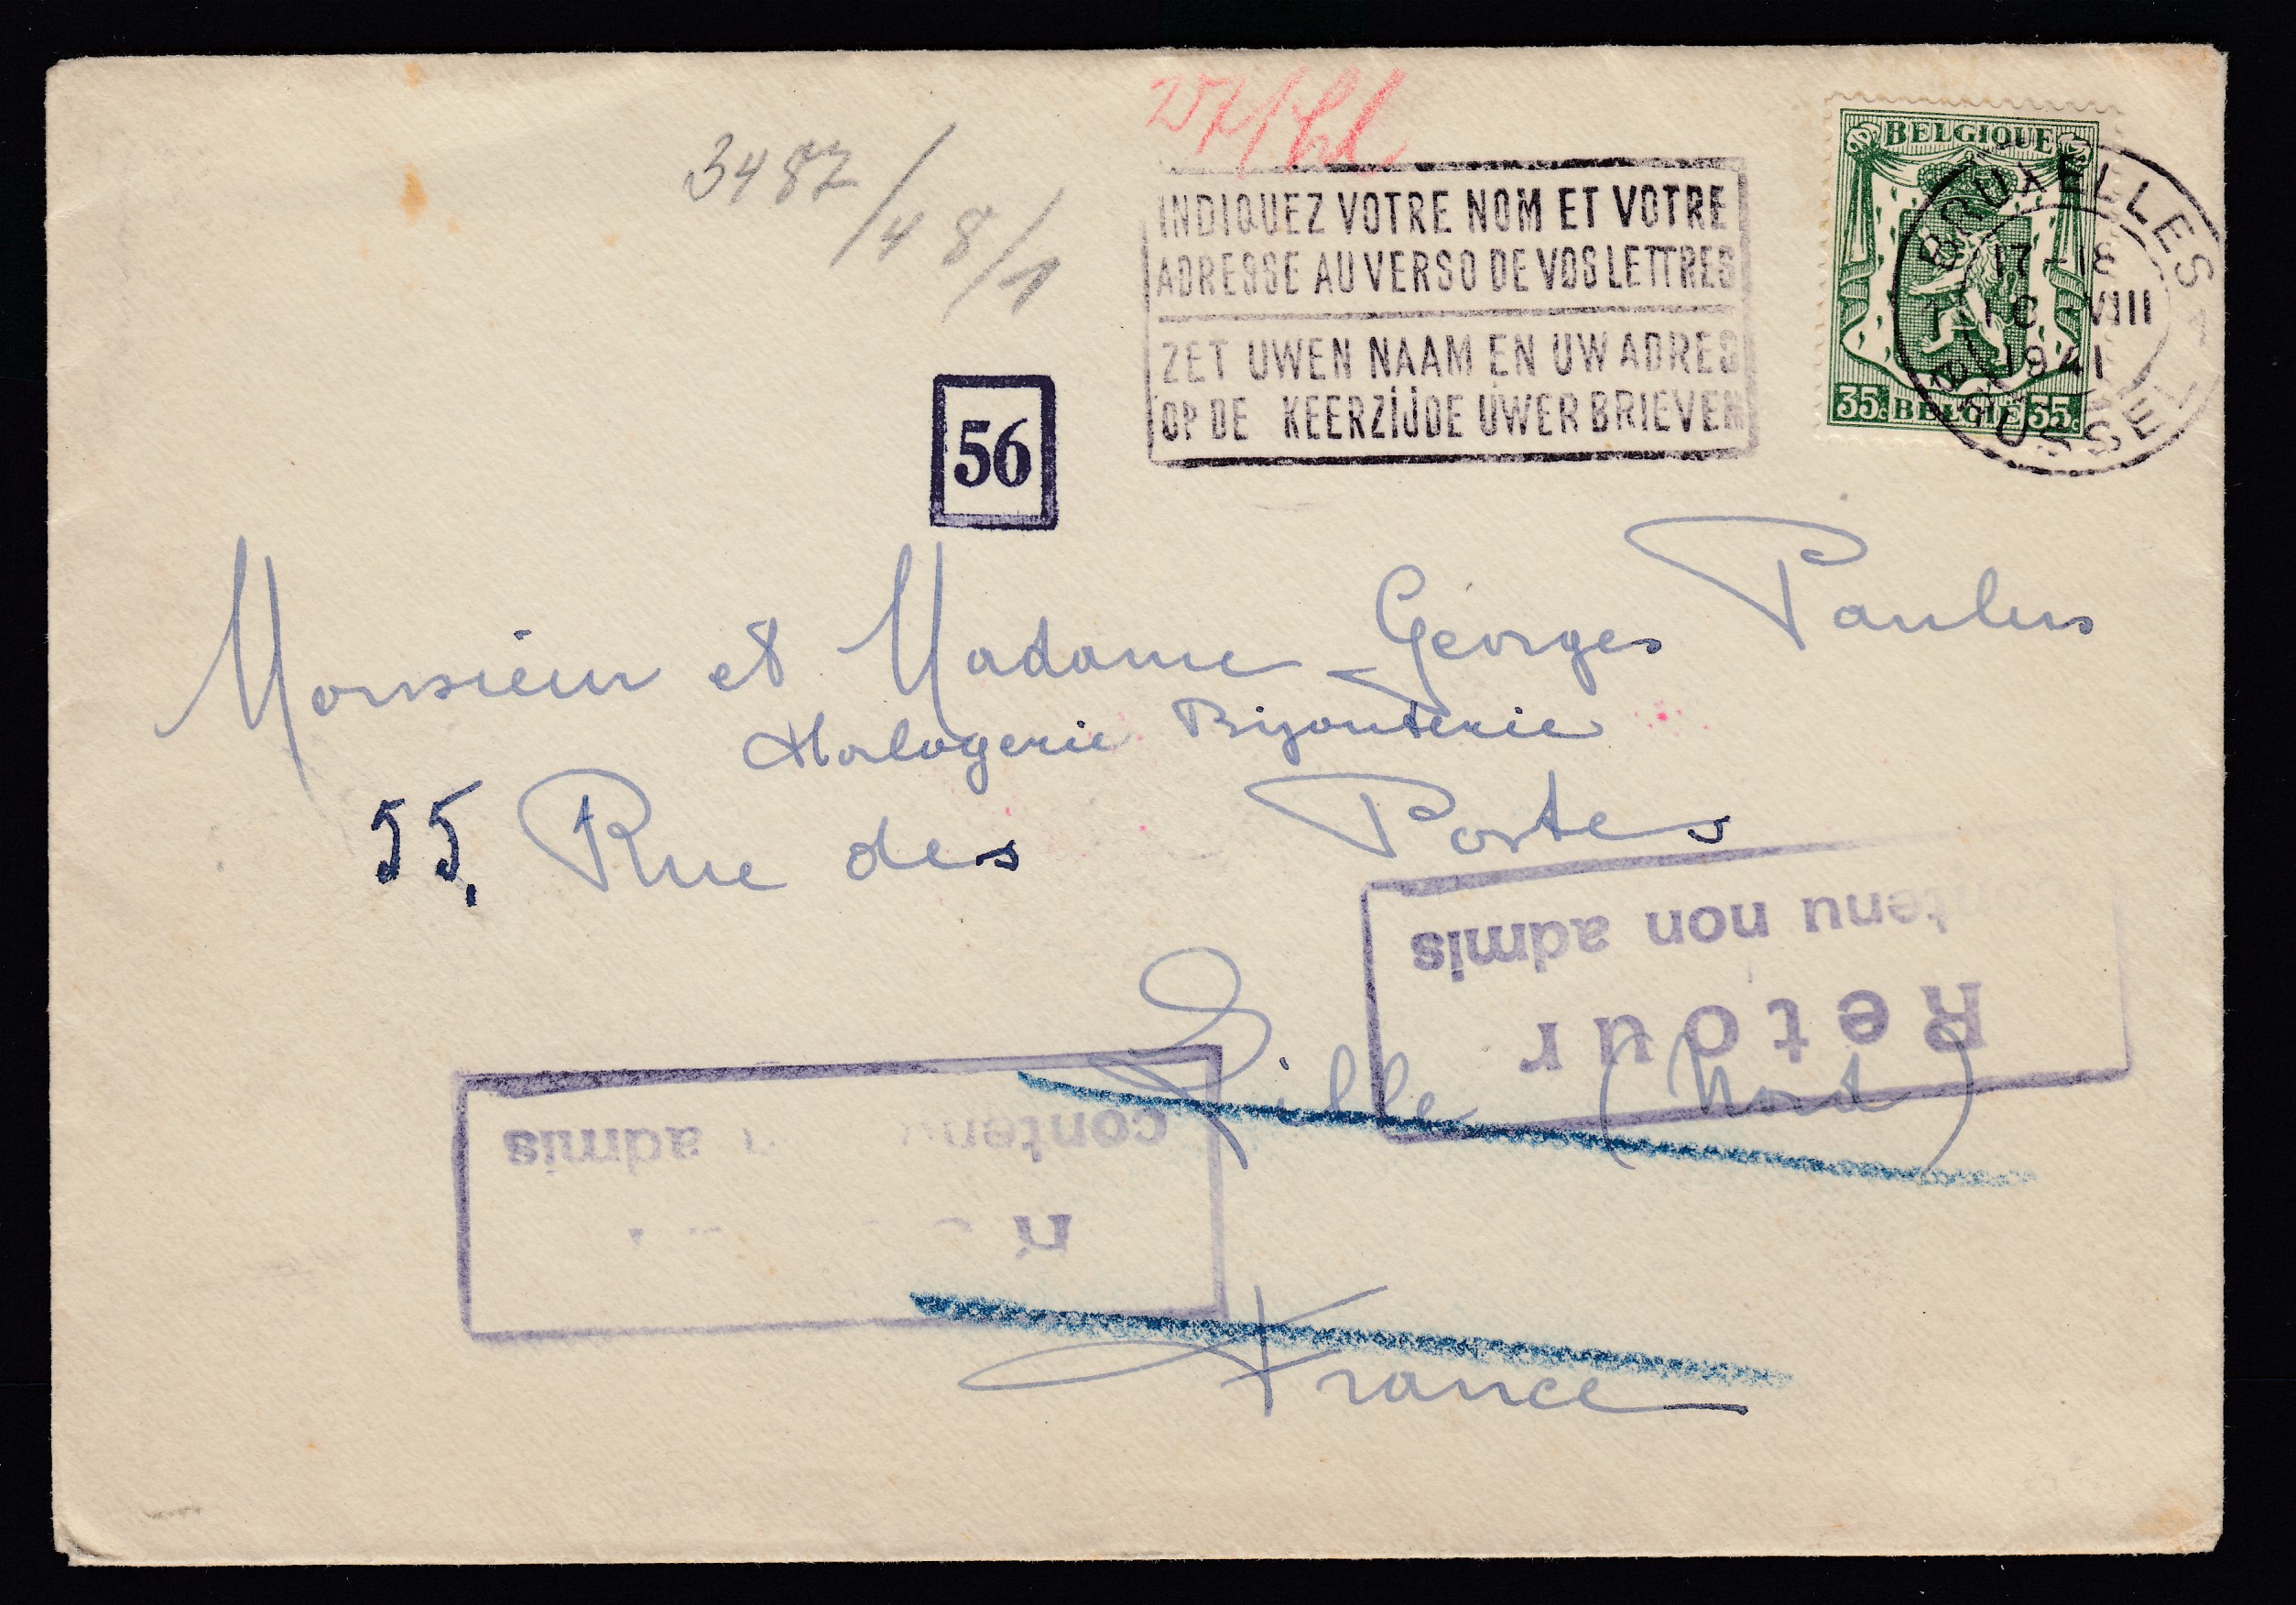 3487/48/1
INDIQUEZ VOTRE NOM ET VOTRE
ADRESSE AU VERSO DE VOS LETTRES
ZET UWEN NAAM EN UW ADRES
OP DE KEERZIJDE UWER BRIEVEN
BELGIQUE
35c BELGIE 35c
BRUXELLES
17-18
VIII
1941
BRUSSEL
56
Monsieur et Madame Georges Paulus
Horlogerie Bijouterie
55, Rue des Postes
Lille (Nord)
France
Retour
contenu non admis
contenu admis